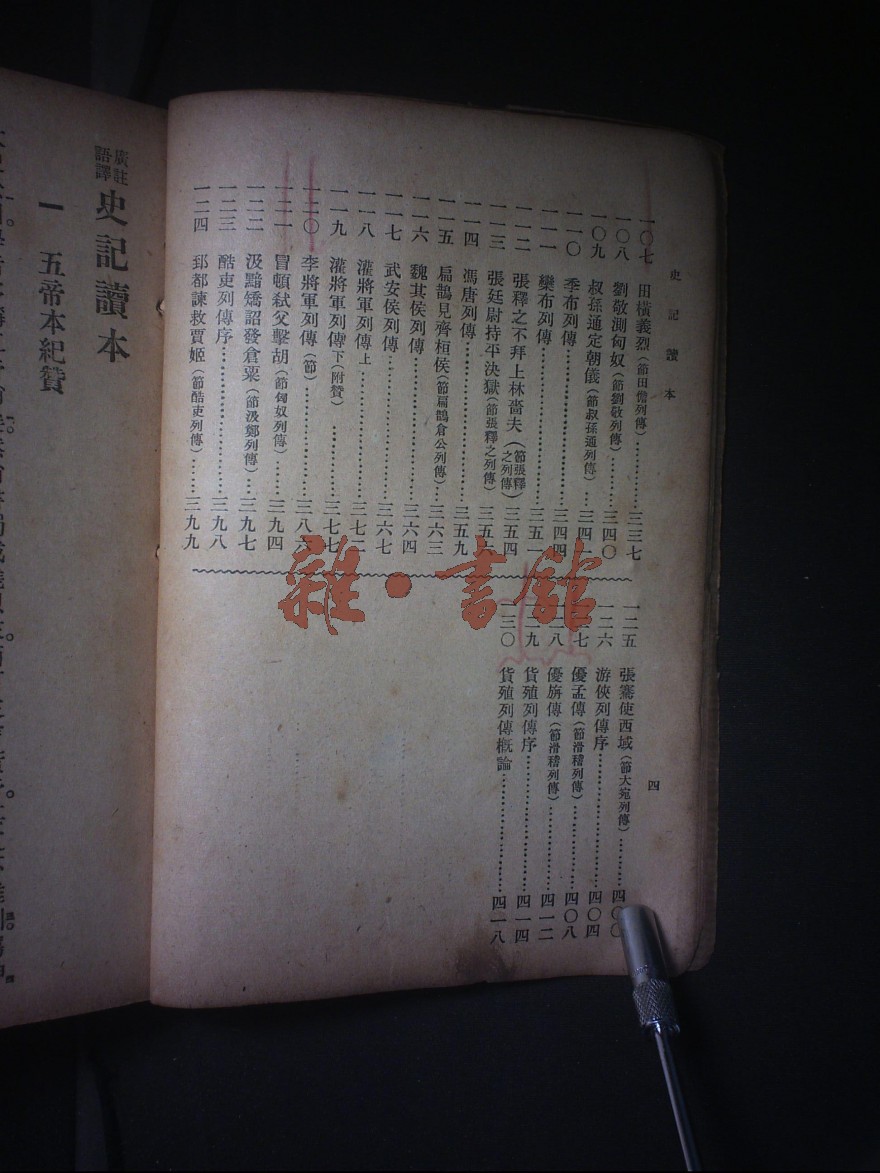 史記讀本
四
一〇七 田橫義烈（節田儋列傳）………三三七
一〇八 劉敬測匈奴（節劉敬列傳）………三四〇
一〇九 叔孫通定朝儀（節叔孫通列傳）………三四
一一〇 季布列傳………三四四
一一一 欒布列傳………三五一
一一二 張釋之不拜上林嗇夫（節張釋之列傳）三五四
一一三 張廷尉持平決獄（節張釋之列傳）三五
一一四 馮唐列傳………三五九
一一五 扁鵲見齊桓侯（節扁鵲倉公列傳）………三六三
一一六 魏其侯列傳………三六四
一一七 武安侯列傳………三六七
一一八 灌將軍列傳上………三七
一一九 灌將軍列傳下（附贊）………三七七
一二〇 李將軍列傳（節）………三八六
一二一 冒頓弒父擊胡（節匈奴列傳）………三九四
一二二 汲黯矯詔發倉粟（節汲鄭列傳）………三九七
一二三 酷吏列傳序………三九八
一二四 郅都諫救賈姬（節酷吏列傳）………三九九
一二五 張騫使西域（節大宛列傳）………四〇〇
一二六 游俠列傳序………四〇四
一二七 優孟傳（節滑稽列傳）………四〇八
一二八 優旃傳（節滑稽列傳）………四一二
一二九 貨殖列傳序………四一四
一三〇 貨殖列傳概論………四一八
雜·書館
廣註語譯 史記讀本
一 五帝本紀贊